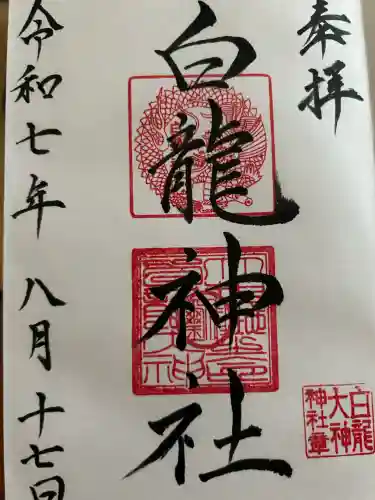 奉拝
白龍神社
令和七年 八月 十七日
白龍
大神
神社璽